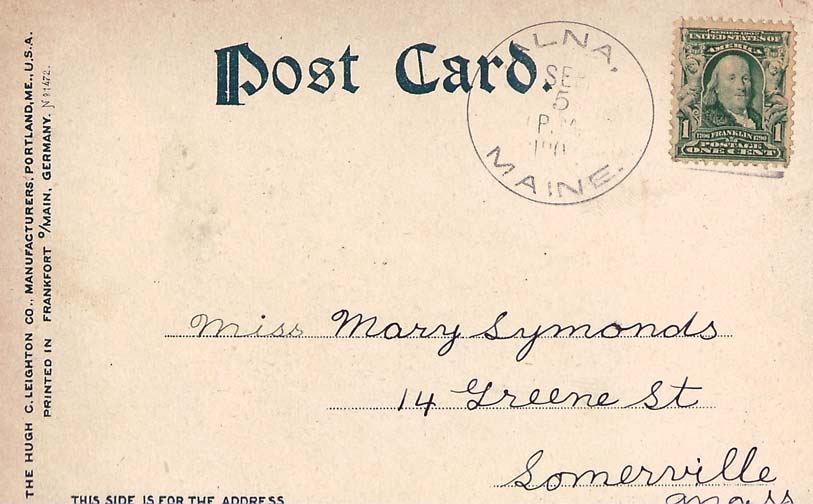 THE HUGH C. LEIGHTON CO., MANUFACTURERS, PORTLAND, ME., U.S.A.
PRINTED IN FRANKFORT O/MAIN, GERMANY. No 1472.
Post Card.
ALNA,
SEP
5
P.M.
MAINE.
SERIES 1902
UNITED STATES OF
AMERICA
1 1706 FRANKLIN 1790 1
POSTAGE
ONE CENT
Miss Mary Symonds
14 Greene St
Somerville
Mass
THIS SIDE IS FOR THE ADDRESS